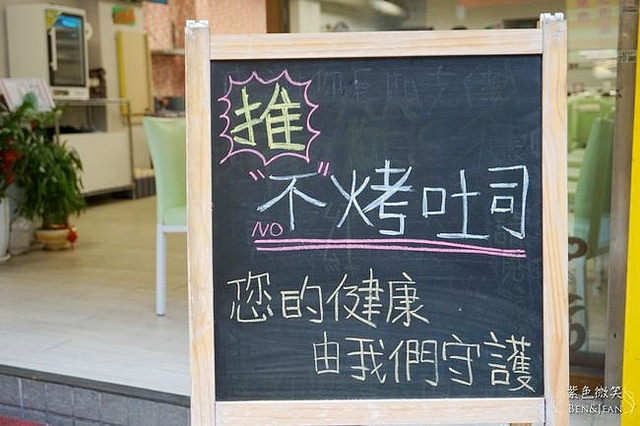 推
"不"烤吐司
NO
您的健康
由我們守護
紫色微笑
BEN&JEAN